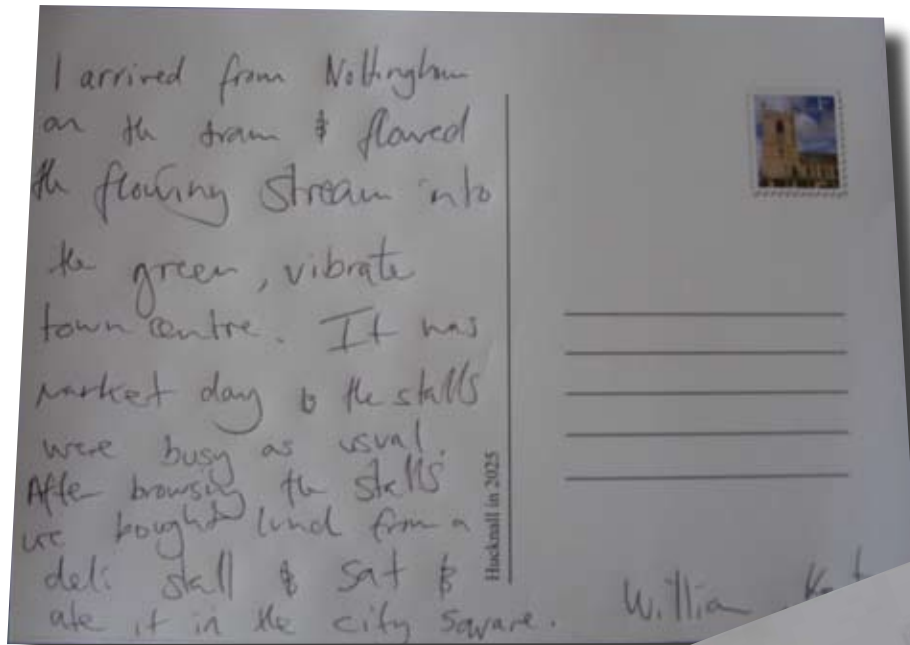 I arrived from Nottingham
on the tram & flowed
the flowing stream into
the green, vibrate
town centre. It was
market day & the stalls
were busy as usual.
After browsing the stalls
we bought lunch from a
deli stall & sat &
ate it in the city square.
Hucknall in 2025
William